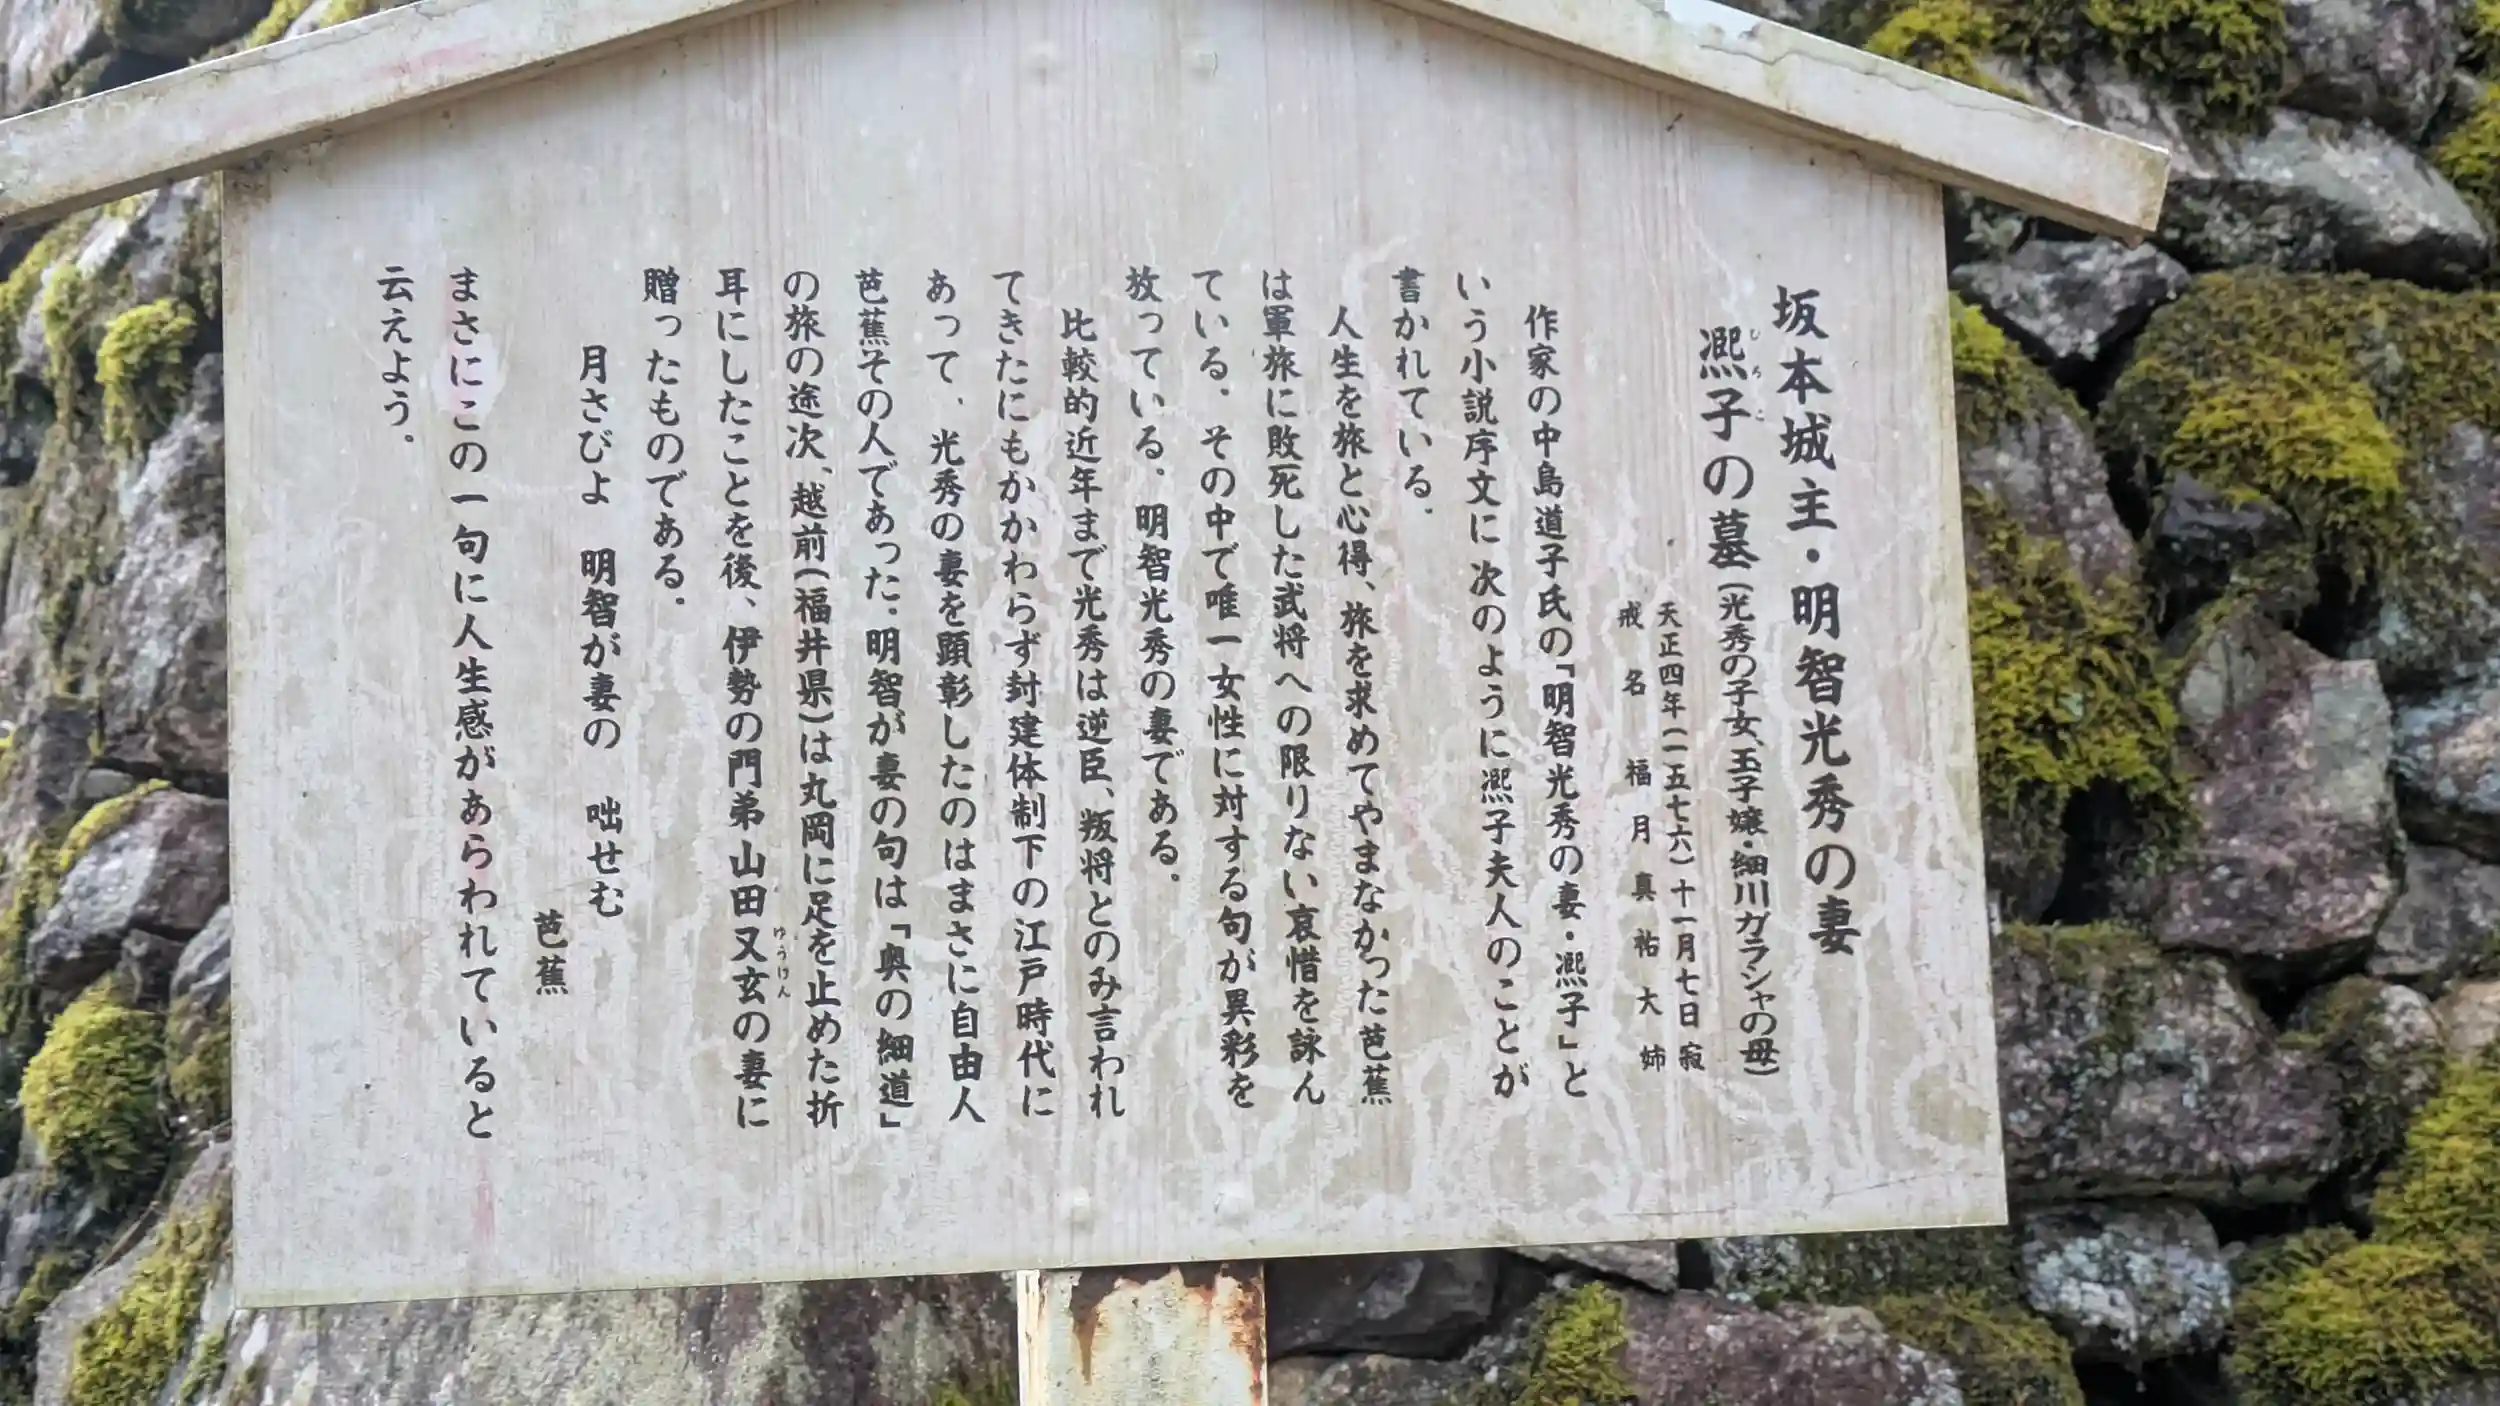 坂本城主・明智光秀の妻
凞子の墓(光秀の子女、玉子嬢・細川ガラシャの母)
ひろこ
天正四年(一五七六)十一月七日寂
戒名 福月真祐大姉
作家の中島道子氏の「明智光秀の妻・凞子」と
いう小説序文に次のように凞子夫人のことが
書かれている。
人生を旅と心得、旅を求めてやまなかった芭蕉
は軍旅に敗死した武将への限りない哀惜を詠ん
ている。その中で唯一女性に対する句が異彩を
放っている。明智光秀の妻である。
比較的近年まで光秀は逆臣、叛将とのみ言われ
てきたにもかかわらず封建体制下の江戸時代に
あって、光秀の妻を顕彰したのはまさに自由人
芭蕉その人であった。明智が妻の句は「奥の細道」
の旅の途次、越前(福井県)は丸岡に足を止めた折
耳にしたことを後、伊勢の門弟山田又玄の妻に
ゆうげん
贈ったものである。
月さびよ 明智が妻の 咄せむ
芭蕉
まさにこの一句に人生感があらわれていると
云えよう。